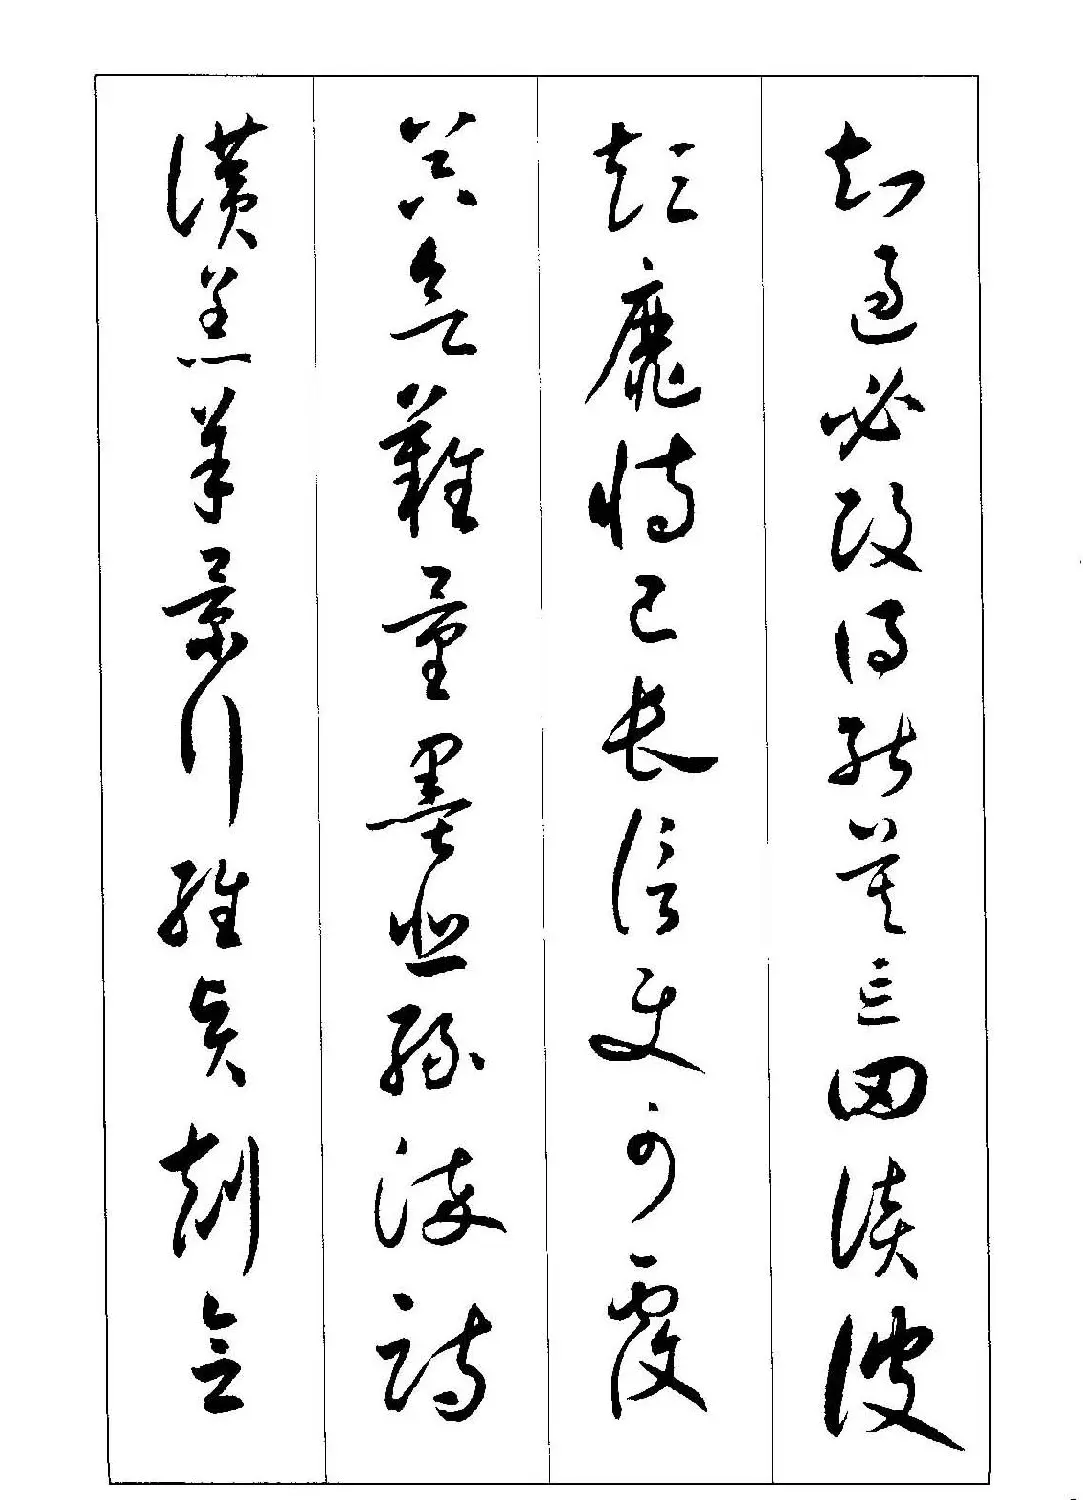 知過必改得能莫忘罔談彼
短靡恃己長信使可覆
器欲難量墨悲絲染詩
讚羔羊景行維賢剋念